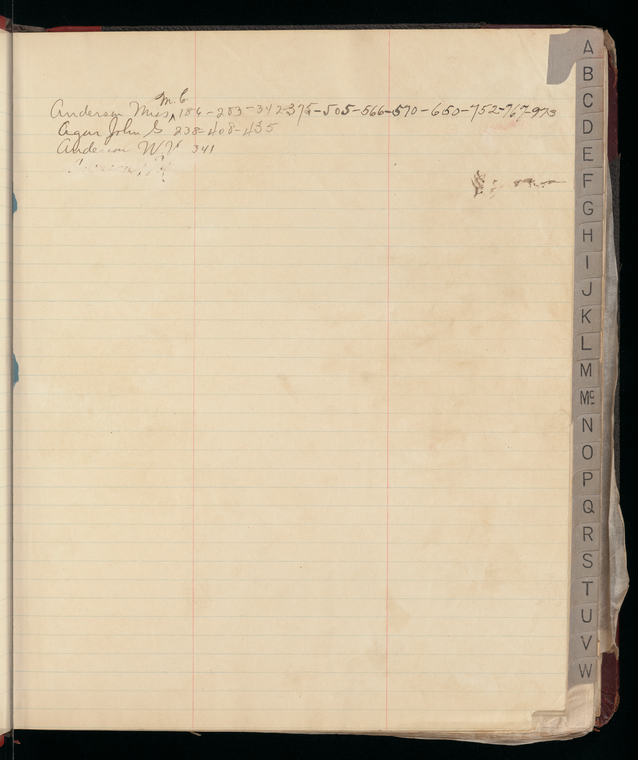 m.C.
Anderson Miss ^ 184-283-342-375-505-566-570-650-752-767-973
Agar John G. 238-408-435
Anderson W. 341
A
B
C
D
E
F
G
H
I
J
K
L
M
Mc
N
O
P
Q
R
S
T
U
V
W